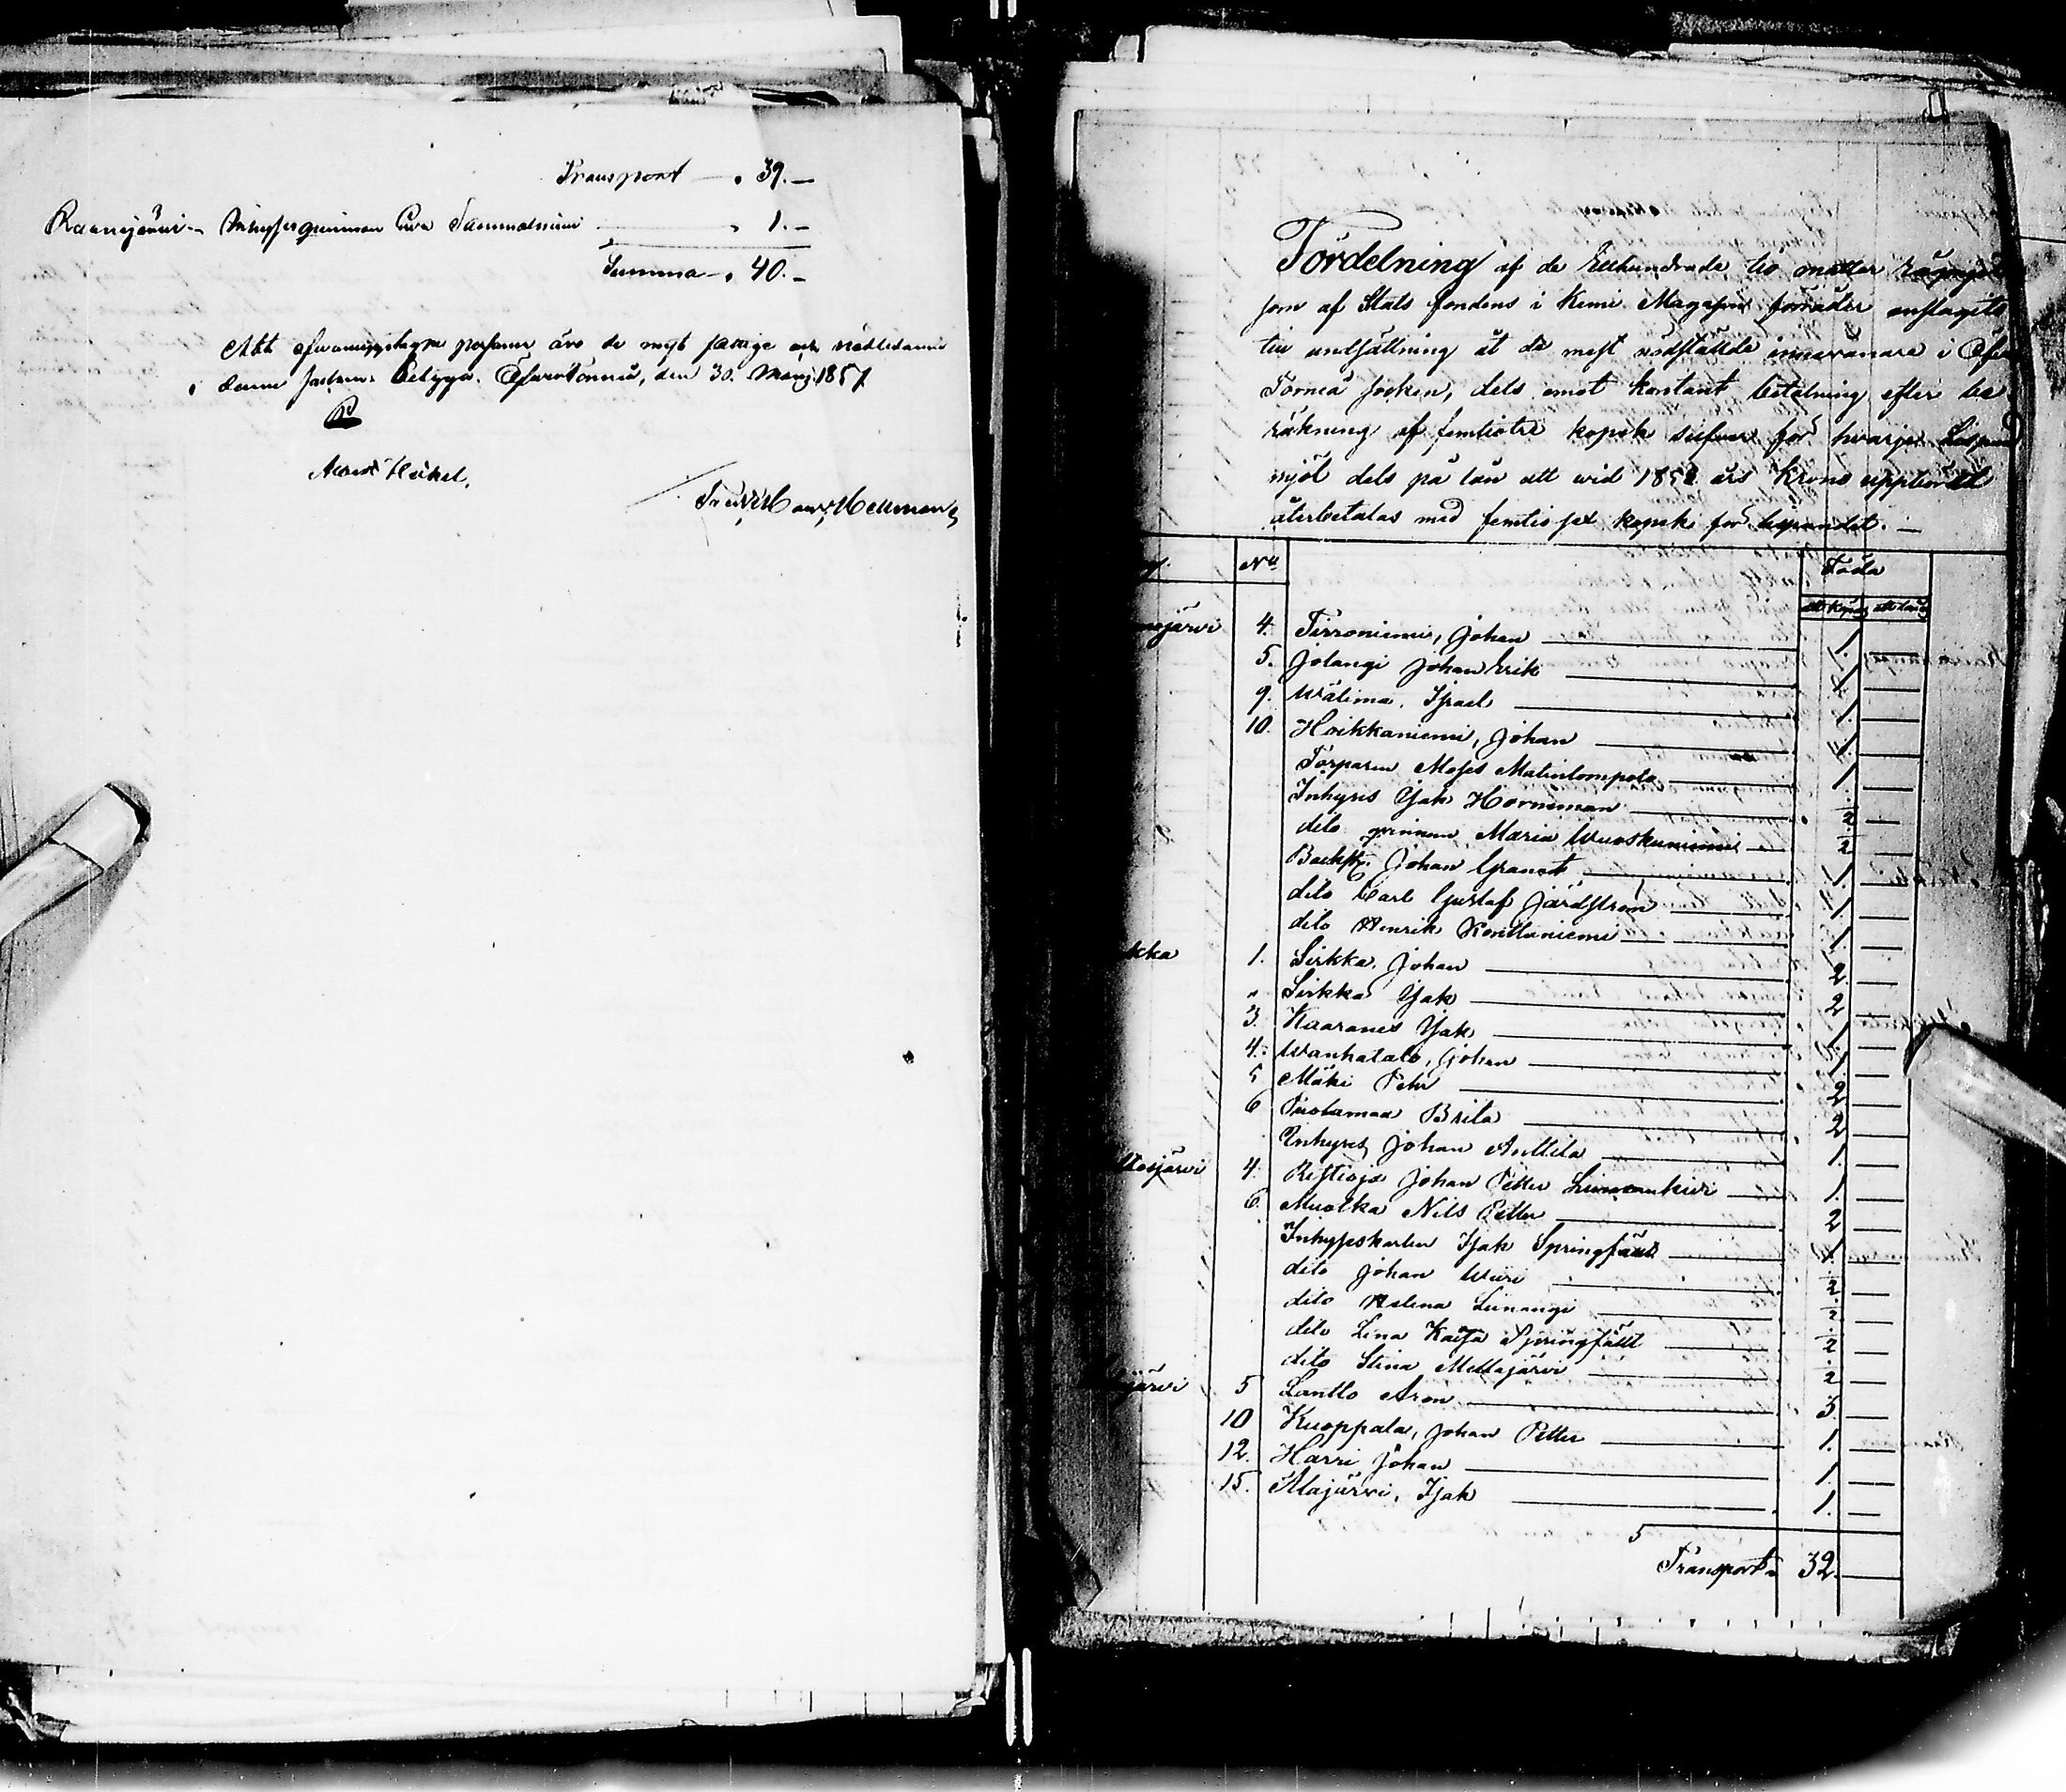 Transport — " 39.—
Raanejärvi - Inhyses qvinnan Eva Tammelnimi " 1.—
Summa —" 40.—
Att ofvanuppstagne personer äro de mest fattige och nödlidande
i denne socken, betygar. Öfvertorneå, den 30. Mars 1857
Albert Heikel,
Hellman
Fördelning af de Etthundrade tio mattor rågmjöl
som af Stats fondens i Kemi Magasins förråder anslagits
till undsättning åt de mest nödstälde innevånare i Öfver
Torneå socken, dels emot kontant betalning efter be-
räkning af femtiotre kopek silfver för hvarje Lispund
mjöl dels på lån att vid 1858 års Krono uppbörd
återbetalas med femtiosex kopek för lispundet. —
No Föda
att köpas att lånas
järvi 4. Tirroniemi, Johan 1. —
5. Jolangi Johan Erik 1. —
9. Wälima, Isräel 1. —
10. Hoikkaniemi, Johan 1. —
Torparen Moses Matinlompolo 1 —
Inhyses Isak Horniman 2 —
dito qvinnan Maria Wuoskuniemi 2 —
Backst. Johan Granat 1. —
dito Carl Gustaf Järdström 1 —
dito Henrik Konttaniemi 1. —
kka 1. Sirkka, Johan 2 —
" Sirkka Isak 2 —
3. Kaaranes Isak 1. —
4. Wanhatalo, Johan 1. —
5 Mäki Pehr 2 —
6 Puotamaa Brita 2 —
Inhyses Johan Anttila 1. —
järvi 4. Ristioja Johan Petter 1. —
6. Muotka Nils Petter 2 —
Inhyseskarlen Isak Springfält 1. —
dito Johan Wiiri 2 —
dito Helena Liinangi 2 —
dito Lina Kaisa Springfält 2 —
dito Stina Mellajärvi 2 —
järvi 5 Lantto Aron 3. —
10 Kuoppala, Johan Petter 1. —
12. Harri Johan 1. —
15. Alajärvi, Isak 1. —
Transport 32. —